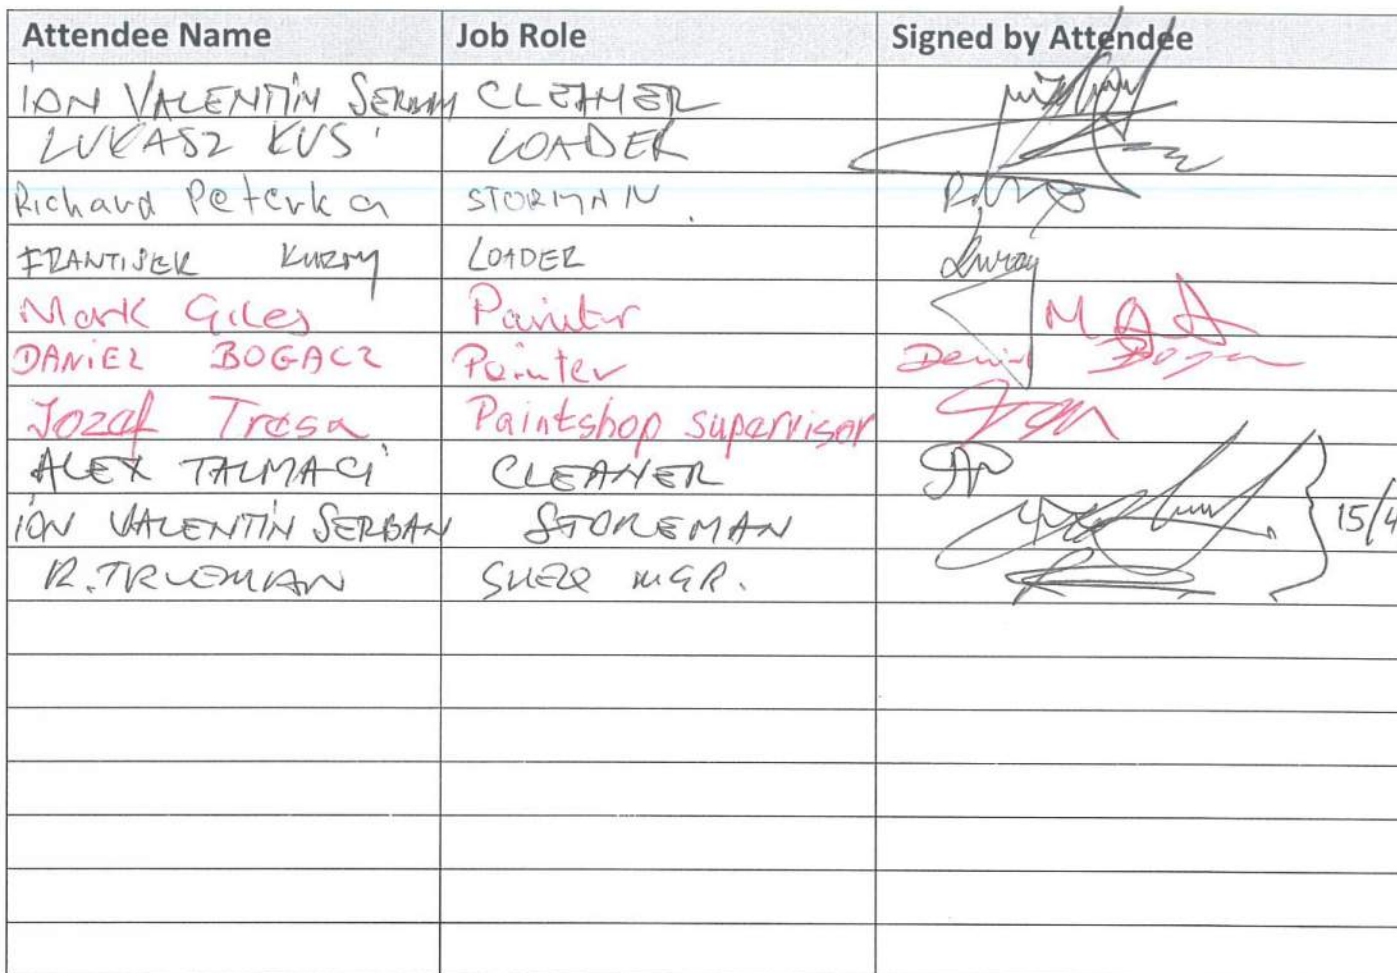 Attendee Name Job Role Signed by Attendee
ION VALENTIN CLEANER
LUKASZ KUS LOADER
Richard Peterka STORMAN
FRANTISEK LOADER
Mark Giles Painter
DANIEL BOGACZ Painter
Jozef Tresa Paintshop supervisor
ALEX TALMACI CLEANER
ION VALENTIN SERBAN STOREMAN 15/4
R. TRUEMAN SHEQ MGR.